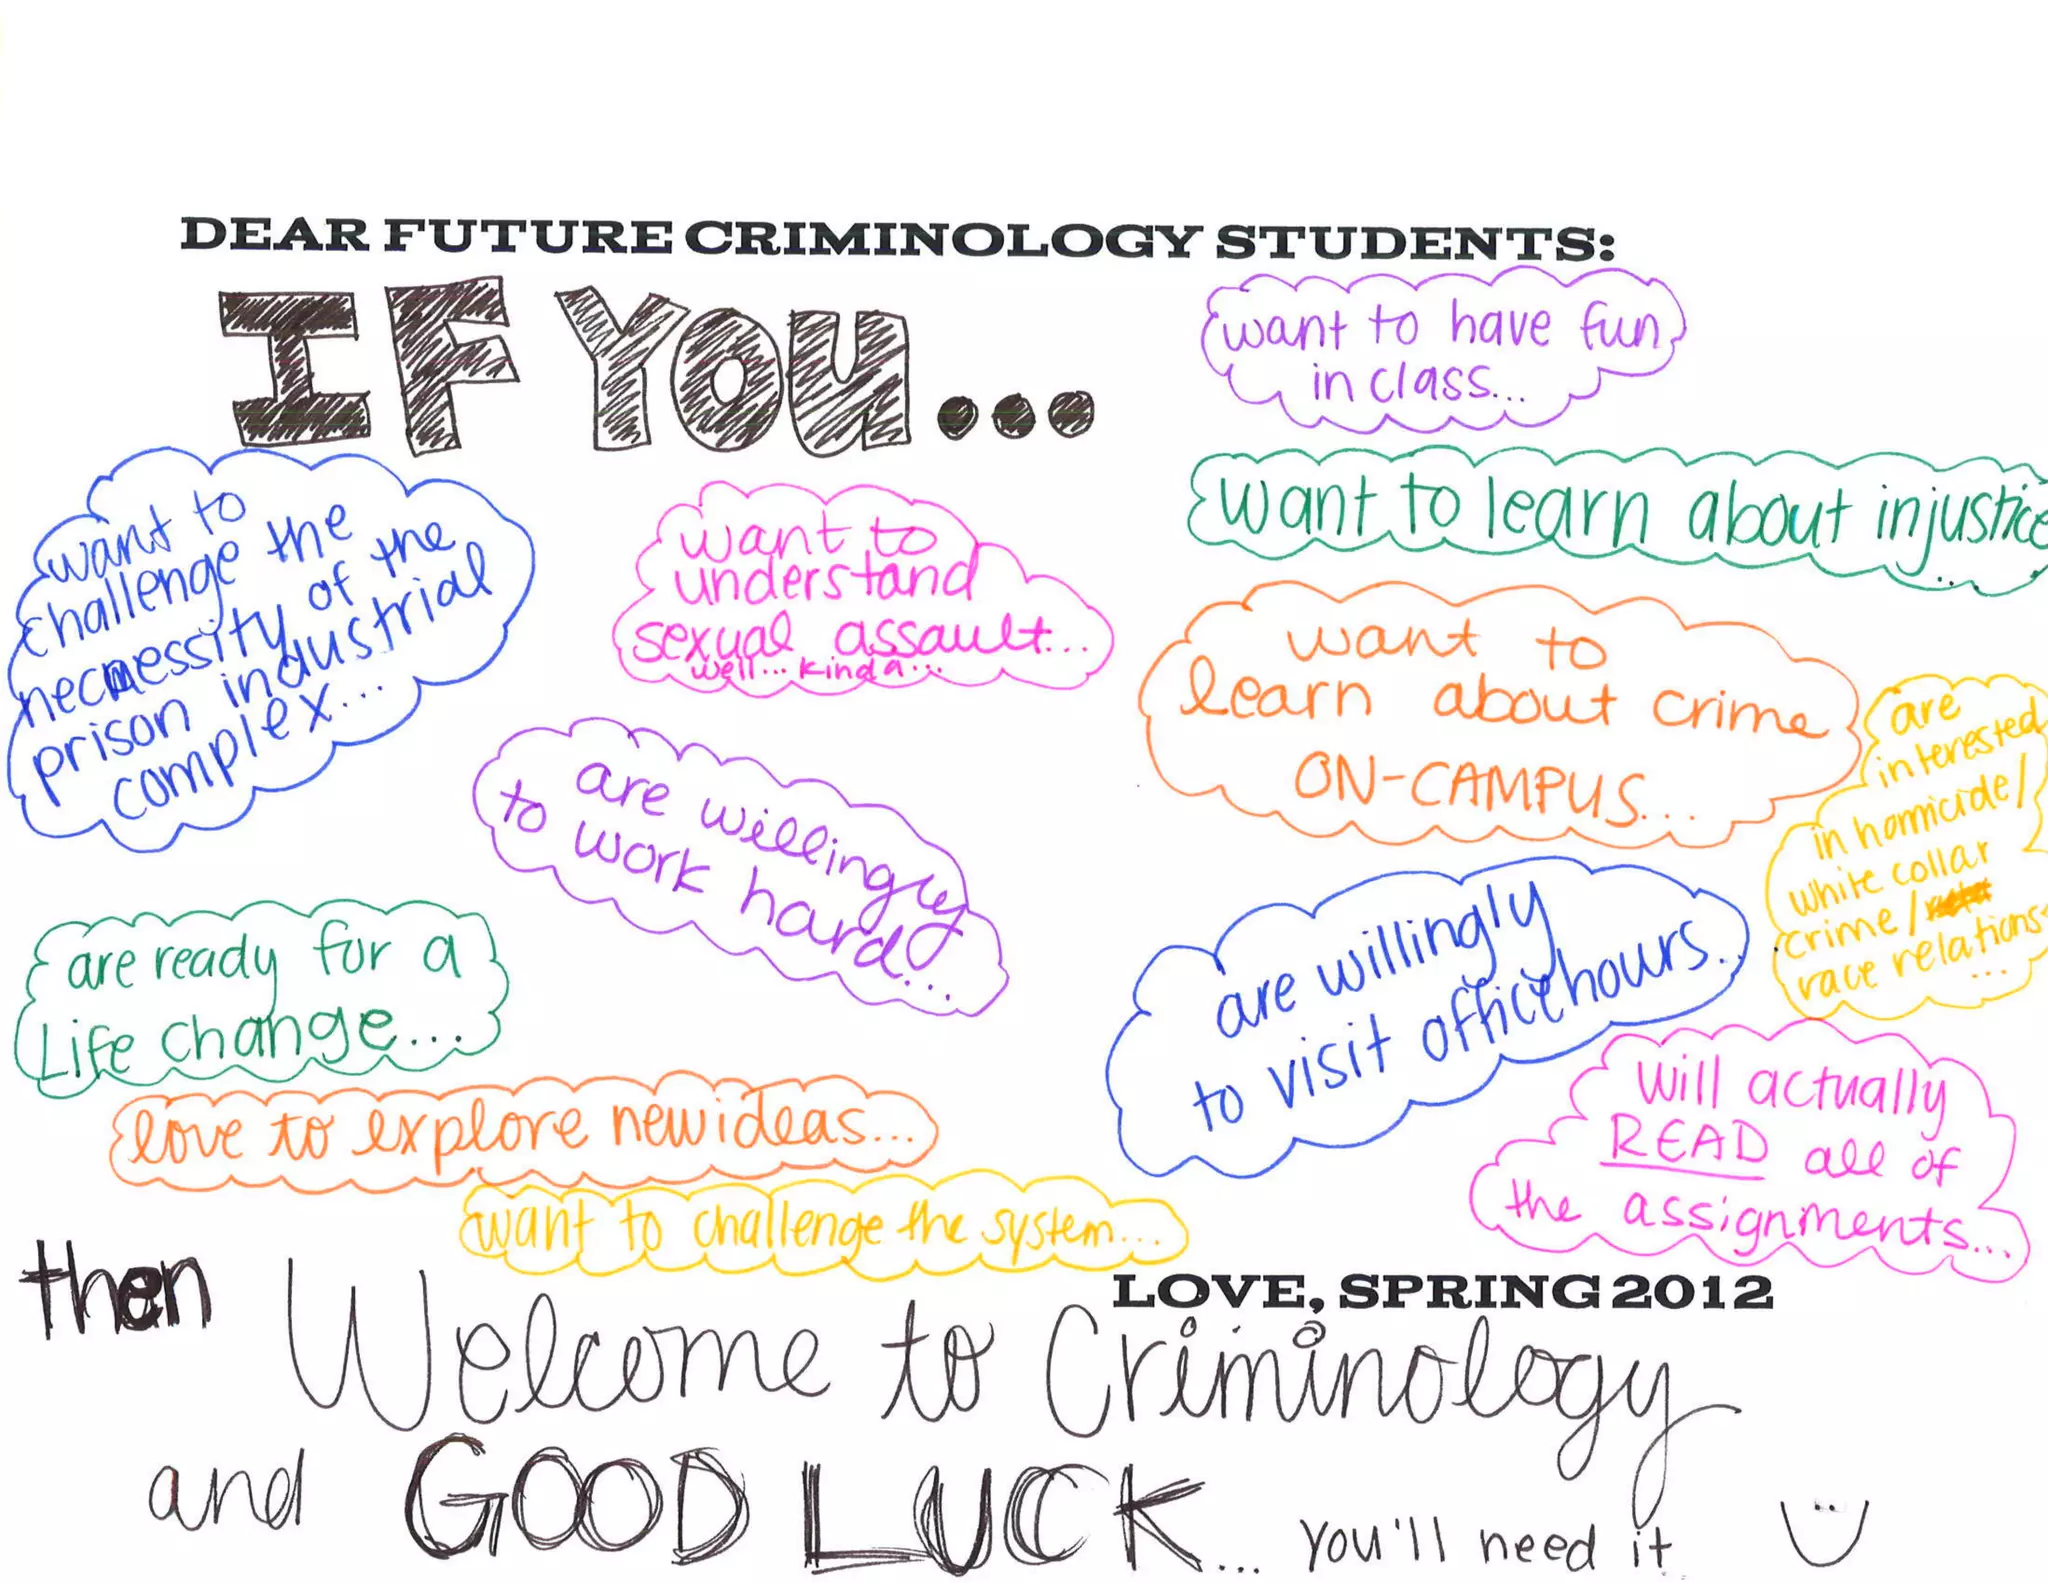 DEAR FUTURE CRIMINOLOGY STUDENTS:
IF YOU...
want to have fun
in class...
want to learn about injustice...
want to
challenge the
necmessity of the
prison industrial
complex...
want to
understand
sexual assault...
well... kinda...
want to
learn about crime
ON-CAMPUS...
are
interested
in homicide/
white collar
crime/
race relations
...
are willingly
to work hard...
are willingly
to visit office hours..
are ready for a
Life change...
will actually
READ all of
the assignments...
love to explore new ideas...
want to challenge the system...
LOVE, SPRING 2012
then Welcome to Criminology
and GOOD LUCK... you'll need it